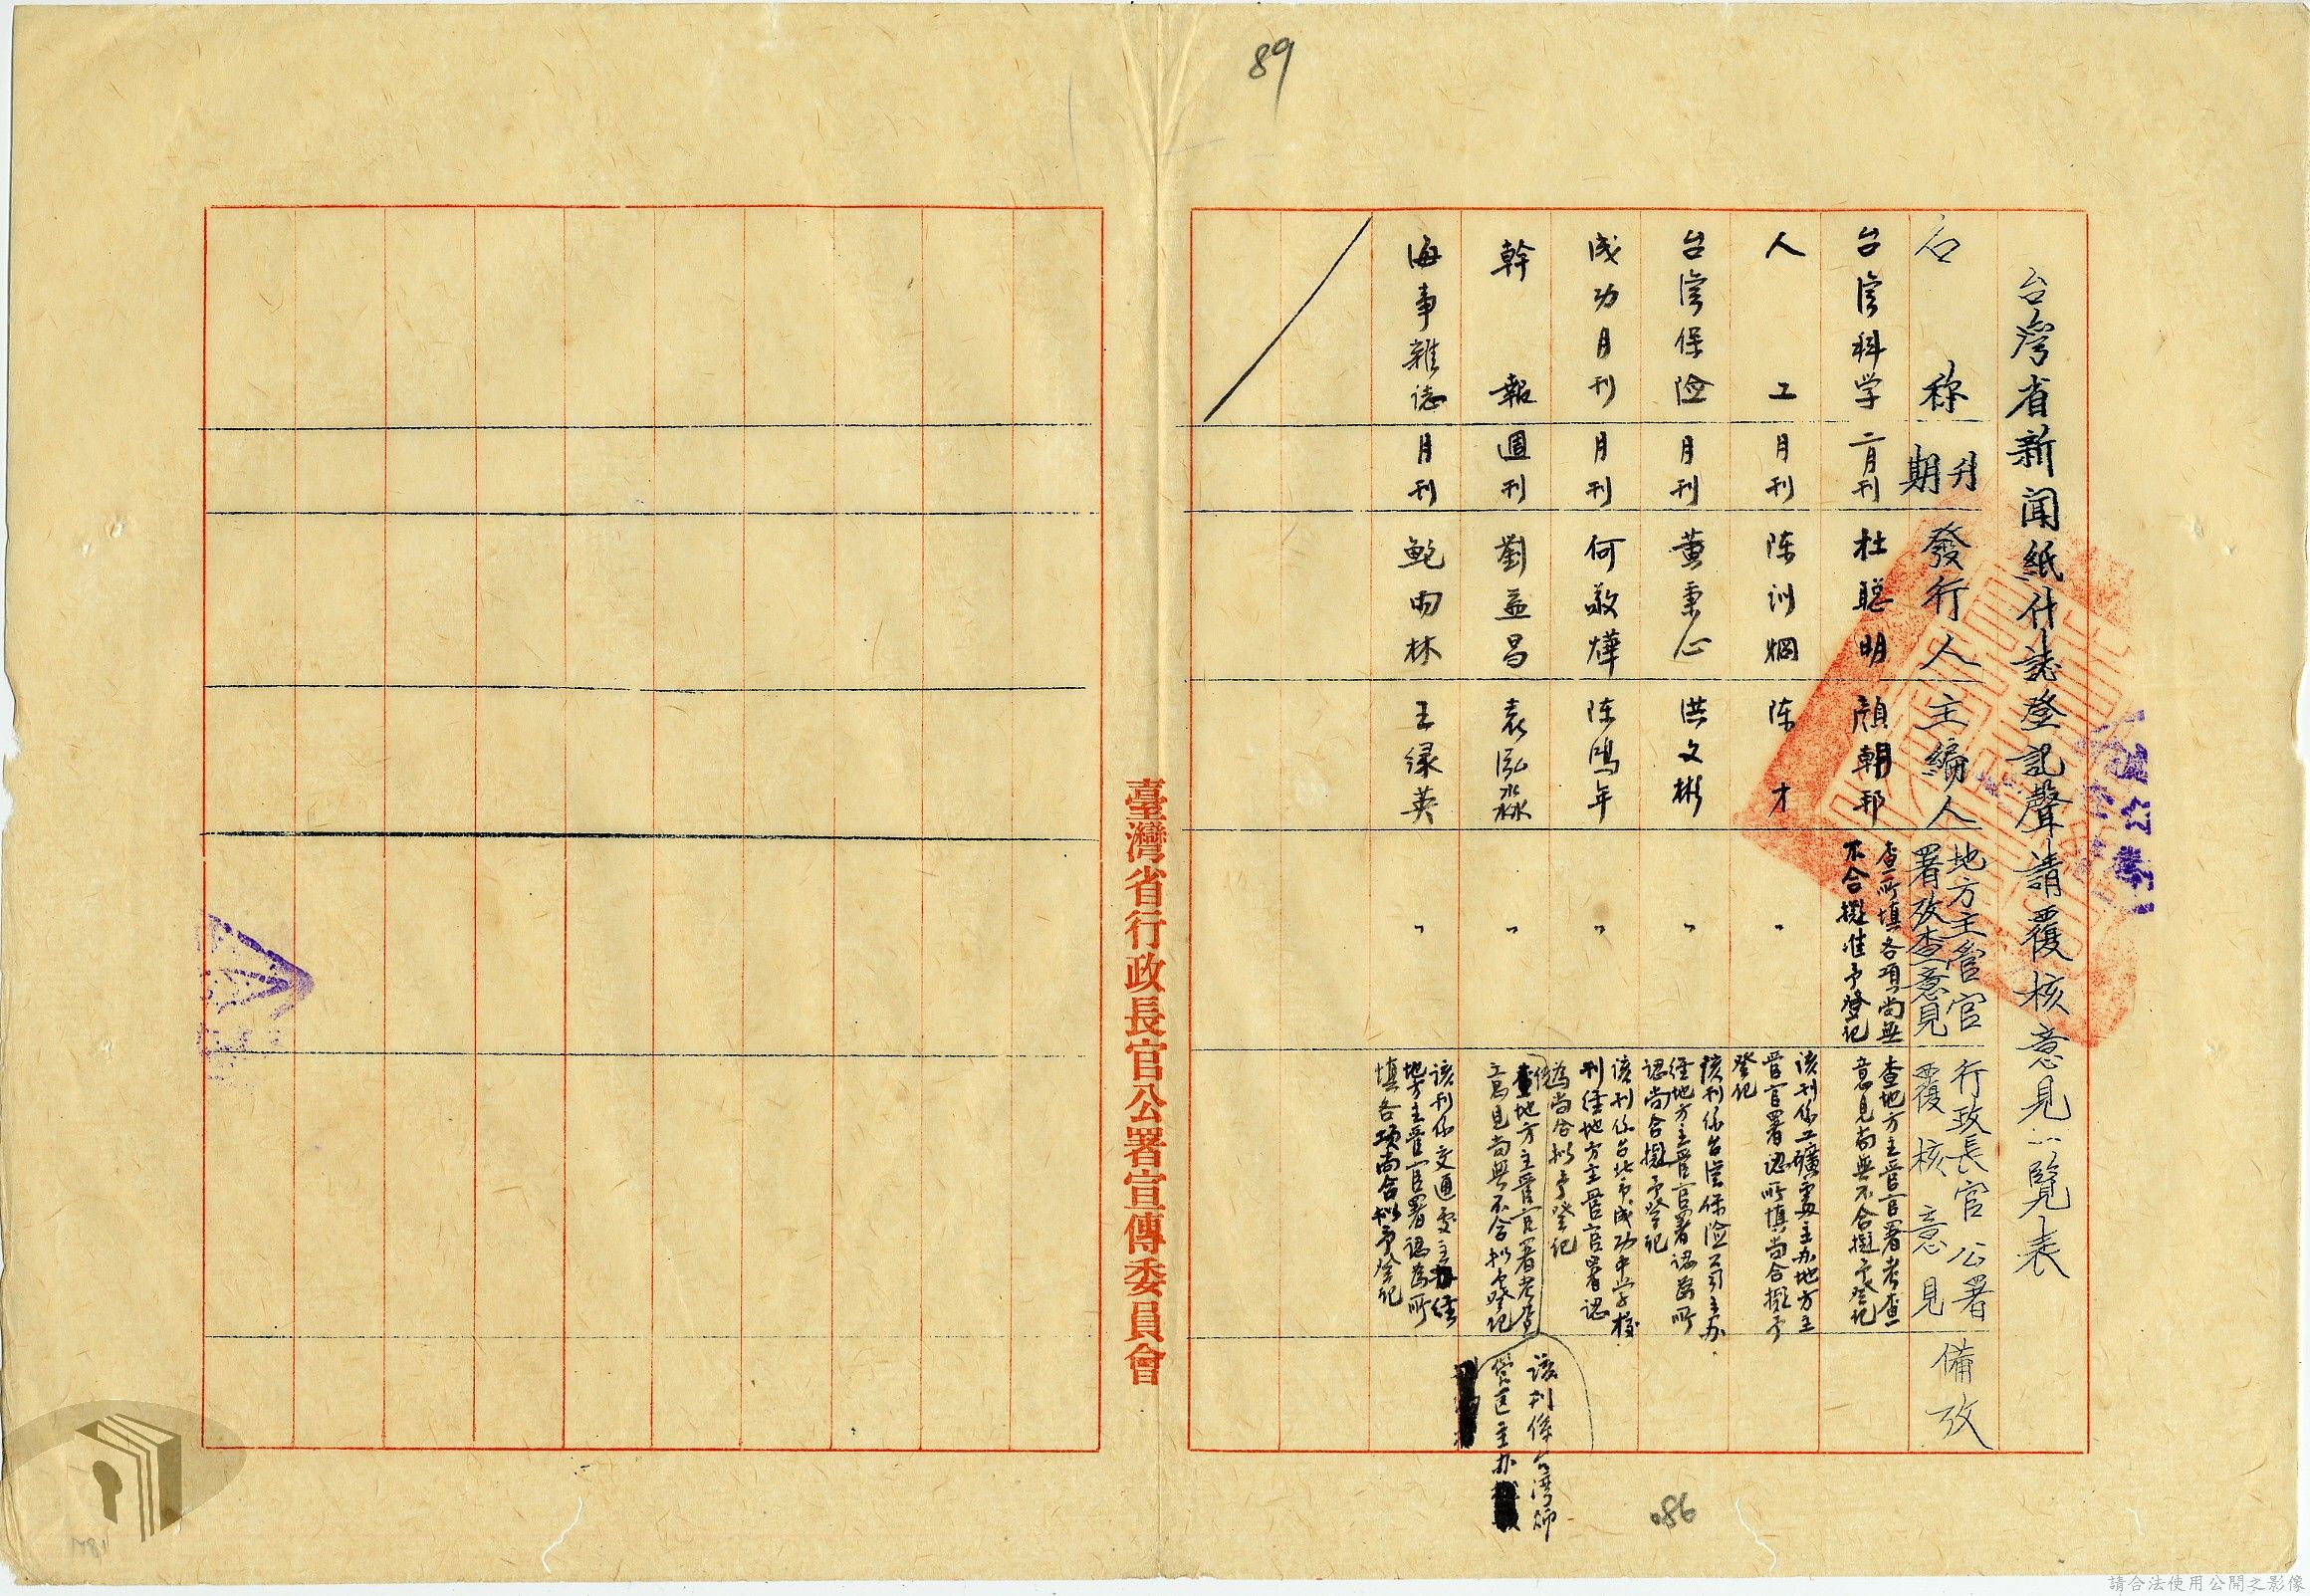 89
台灣省新聞紙什誌登記聲請覆核意見一覽表
名称
刊期
發行人
主編人
地方主管官署攷查意見
行政長官公署覆核意見
備攷
台湾科学
二月刊
杜聪明
顔朝邦
查所填各項尚無
不合擬准予登记
查地方主管官署考查
意見尚無不合擬予登记
人工
月刊
陈训烱
陈才
〃
该刊係工礦處主办地方主
管官署认所填尚合擬予
登记
台湾保险
月刊
黄秉心
洪文彬
〃
该刊係台湾保险公司主办
经地方主管官署认为所
认尚合擬予登记
成功月刊
月刊
何敬燁
陈鴻年
〃
该刊係台北市成功中学校
刊经地方主管官署认
為尚合拟予登记
幹報
週刊
劉益昌
袁泓淼
〃
查地方主管官署考查
意見尚無不合拟予登记
该刊係台湾师
管區主办
海事雜誌
月刊
鲍雨林
王绿英
〃
该刊係交通處主办经
地方主管官署认為所
填各項尚合拟予登记
臺灣省行政長官公署宣傳委員會
086
請合法使用公開之影像